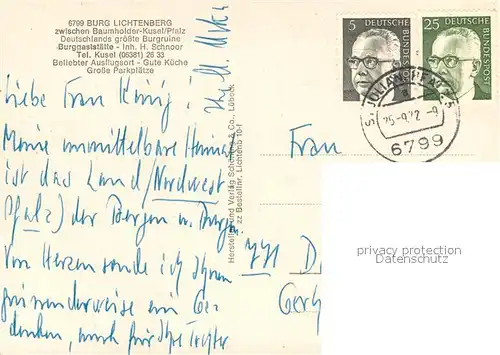 6799 BURG LICHTENBERG
zwischen Baumholder-Kusel/Pfalz
Deutschlands größte Burgruine
Burggaststätte - Inh. H. Schnoor
Tel. Kusel (06381) 26 33
Beliebter Ausflugsort - Gute Küche
Große Parkplätze
5
DEUTSCHE BUNDESPOST
25
DEUTSCHE BUNDESPOST
ST. JULIAN
25.-9.72.-9
6799
Liebe Frau König!
Meine unmittelbare Heimat
ist das Land (Nordwest
Pfalz) der Bergen u. Burgen.
Von Herzen sende ich Ihnen
ein Ge-
denken, auch für Ihre Tochter
Herstellung und Verlag Schöning & Co., Lübeck
zz Bestellnr. Lichtenb 10-f
Frau
771 D
Gerh
privacy protection
Datenschutz